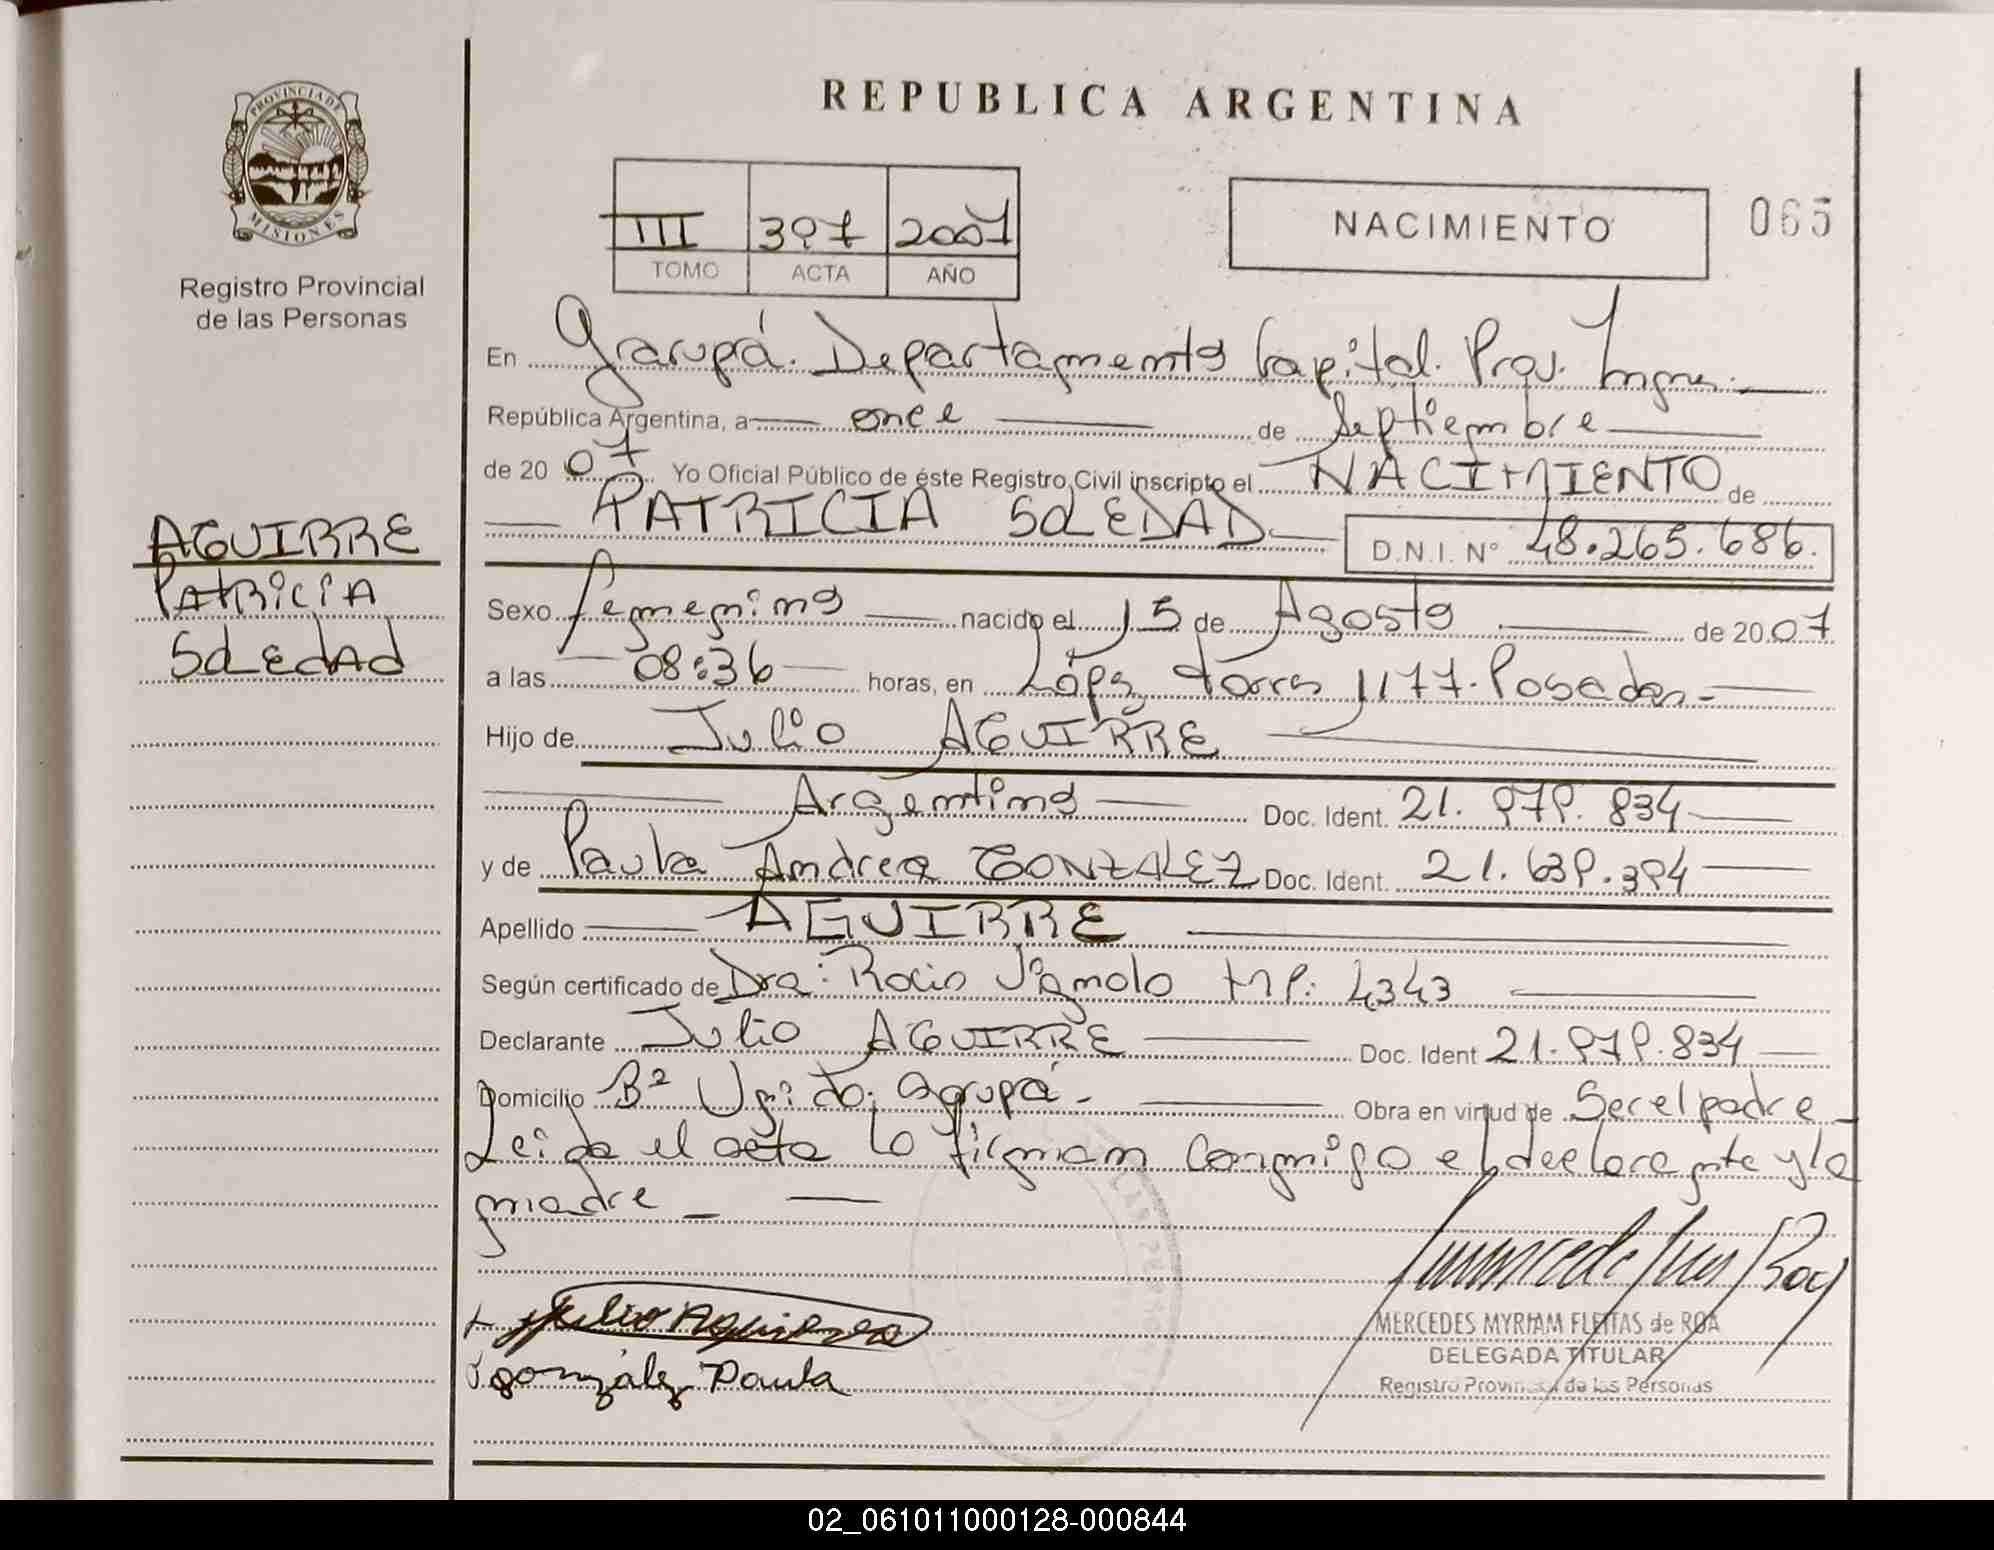 PROVINCIA DE
MISIONES
Registro Provincial
de las Personas
AGUIRRE
PATRICIA
SOLEDAD
REPUBLICA ARGENTINA
III 397 2007
TOMO ACTA AÑO
NACIMIENTO
065
En Garupá. Departamento Capital. Prov. Mnes.
República Argentina, a once de Septiembre
de 20 07 Yo Oficial Público de éste Registro Civil inscripto el NACIMIENTO de
PATRICIA SOLEDAD D.N.I. N° 48.265.686.
Sexo femenino nacido el 15 de Agosto de 20 07
a las 08:36 horas, en López Torres 1177. Posadas-
Hijo de Julio AGUIRRE
Argentino Doc. Ident. 21.979.834
y de Paula Andrea GONZALEZ Doc. Ident. 21.639.394
Apellido AGUIRRE
Según certificado de Dra: Rocio MP: 4343
Declarante Julio AGUIRRE Doc. Ident 21.979.834
Domicilio B° Garupá - Obra en virtud de Ser el padre
Leida el acta lo firman conmigo el declarante y la
madre -
Julio Aguirre
González Paula
MERCEDES MYRIAM FLEITAS de ROA
DELEGADA TITULAR
Registro Provincial de las Personas
02_061011000128-000844